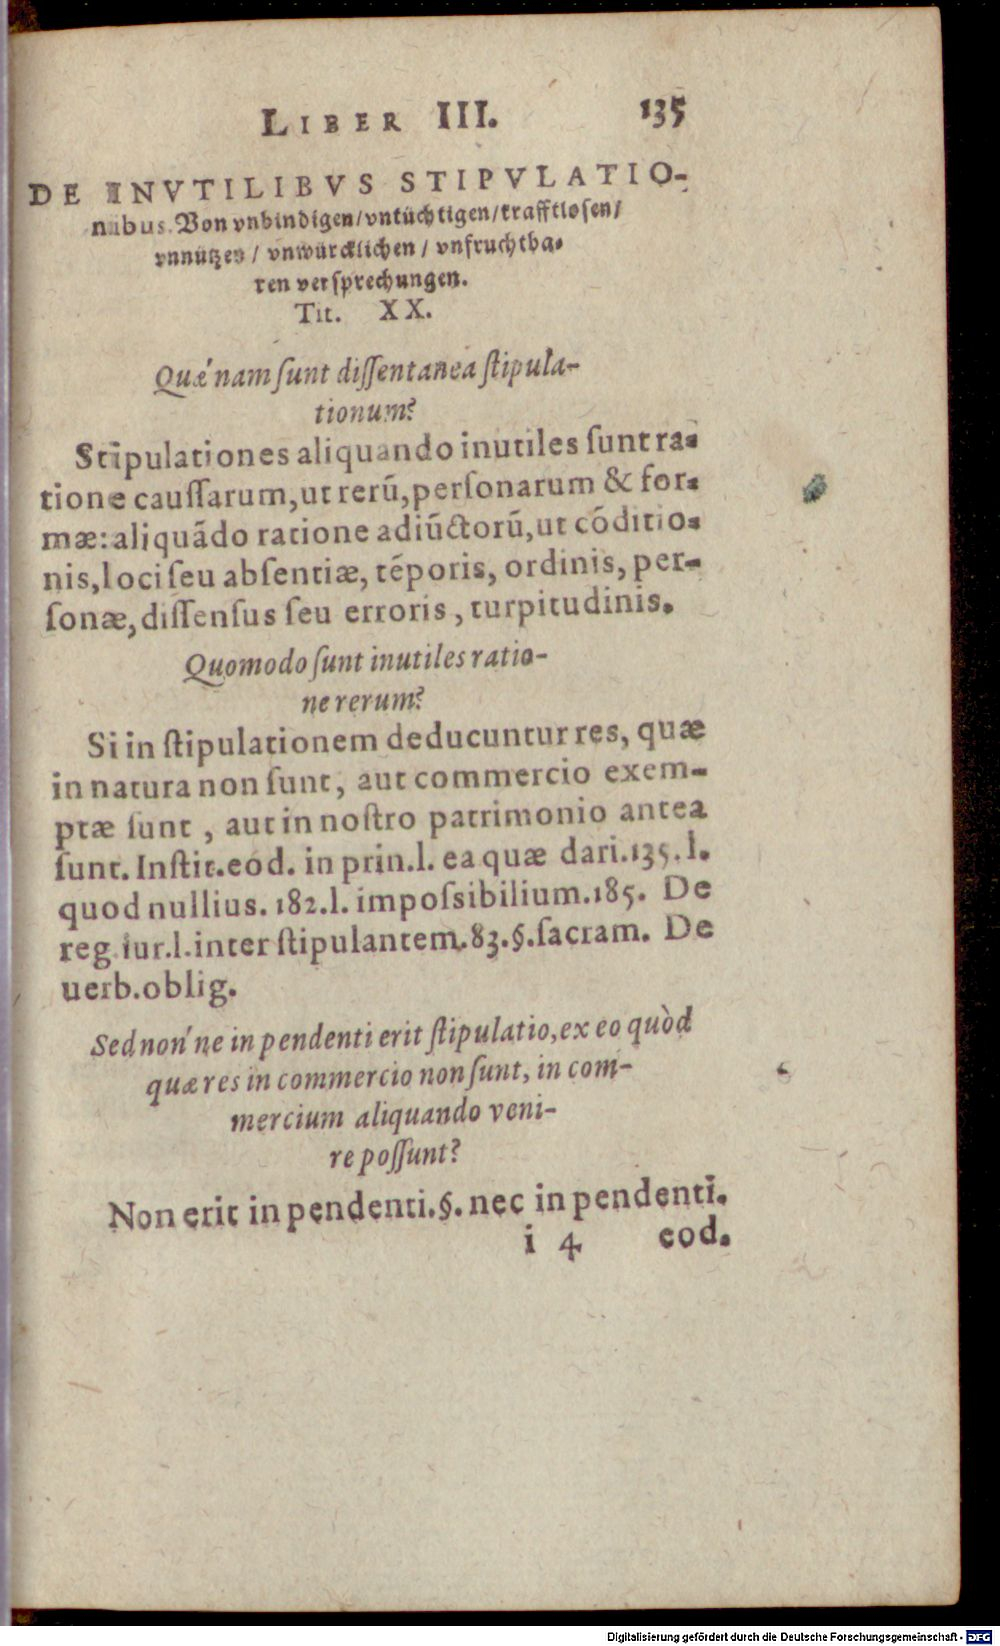 LIBER III. 135
DE INVTILIBVS STIPVLATIO-
nibus. Von vnbindigen/vntüchtigen/krafftlosen/
vnnützen / vnwürcklichen / vnfruchtba-
ren versprechungen.
Tit. XX.
Quæ´nam ſunt diſſentanea ſtipula-
tionum?
Stipulationes aliquando inutiles ſunt ra-
tione cauſſarum, ut rerũ, perſonarum & for-
mæ: aliquãdo ratione adiũctorũ, ut cõditio-
nis, loci ſeu abſentiæ, tẽporis, ordinis, per-
ſonæ, diſſenſus ſeu erroris, turpitudinis.
Quomodo ſunt inutiles ratio-
ne rerum?
Si in ſtipulationem deducuntur res, quæ
in natura non ſunt, aut commercio exem-
ptæ ſunt, aut in noſtro patrimonio antea
ſunt. Inſtit. eod. in prin. l. ea quæ dari. 135. l.
quod nullius. 182. l. impoſsibilium. 185. De
reg. iur. l. inter ſtipulantem. 83. §. ſacram. De
uerb. oblig.
Sed non´ne in pendenti erit ſtipulatio, ex eo quòd
quæ res in commercio non ſunt, in com-
mercium aliquando veni-
re poſſunt?
Non erit in pendenti. §. nec in pendenti.
i 4 eod.
Digitalisierung gefördert durch die Deutsche Forschungsgemeinschaft - DFG